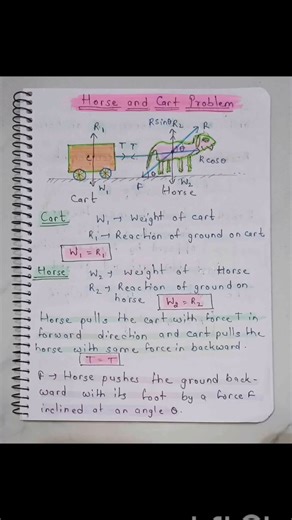 Horse and Cart Problem
R₁
RsinθR₂
R
T T
θ
Rcosθ
W₁
F
W₂
Cart
Horse
Cart
W₁ → Weight of cart
R₁ → Reaction of ground on cart
W₁ = R₁
Horse
W₂ → Weight of Horse
R₂ → Reaction of ground on
horse W₂ = R₂
Horse pulls the cart with force T in
forward direction and cart pulls the
horse with same force in backward.
T = T
F → Horse pushes the ground back-
ward with its foot by a force F
inclined at an angle θ.